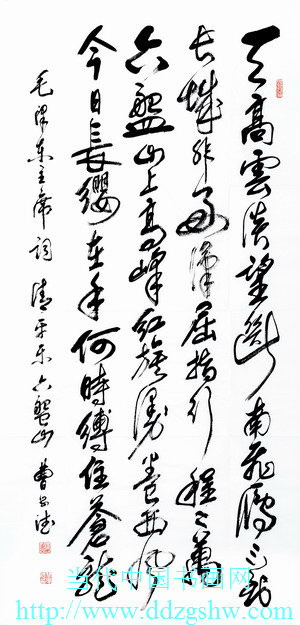 天高雲淡望断南飛鴈不到
长城非好漢屈指行程二萬
六盤山上高峰红旗漫卷西风
今日長缨在手何時縛住蒼龍
毛泽东主席词 清平乐 六盘山 曹
当代中国书画网
http://www.ddzgshw.com